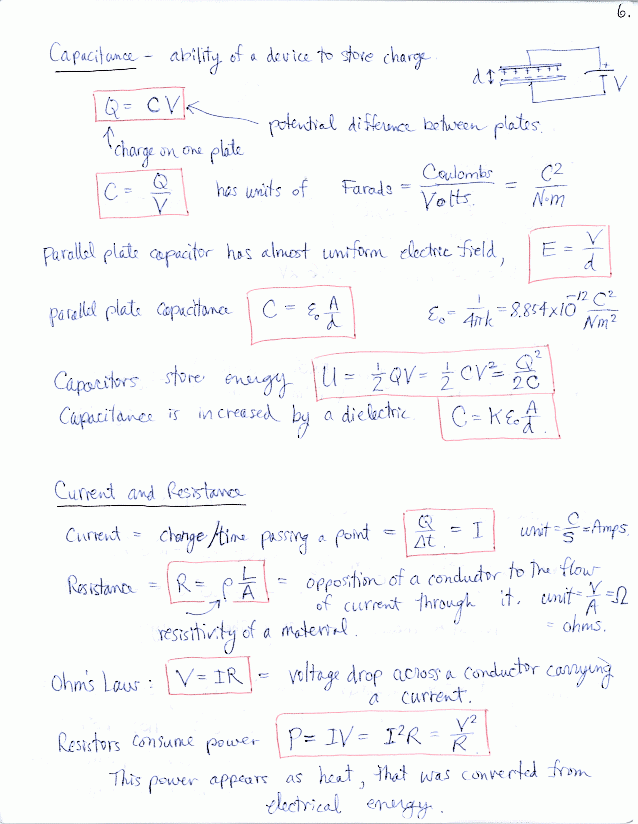 6.
Capacitance – ability of a device to store charge.
d ↕ + + + + + + + – – – – + V
Q = CV
potential difference between plates.
charge on one plate
C = Q/V has units of Farads = Coulombs/Volts = C²/N·m
Parallel plate capacitor has almost uniform electric field, E = V/d
parallel plate capacitance C = ε₀ A/d ε₀ = 1/4πk = 8.854x10⁻¹² C²/Nm²
Capacitors store energy U = 1/2 QV = 1/2 CV² = Q²/2C
Capacitance is increased by a dielectric C = Kε₀ A/d.
Current and Resistance
Current = charge/time passing a point = Q/Δt = I unit = C/S = Amps.
Resistance = R = ρ L/A = opposition of a conductor to the flow
of current through it. unit = V/A = Ω
resisitivity of a material. = ohms.
Ohm's Law : V = IR = voltage drop across a conductor carrying
a current.
Resistors consume power P = IV = I²R = V²/R
This power appears as heat, that was converted from
electrical energy.